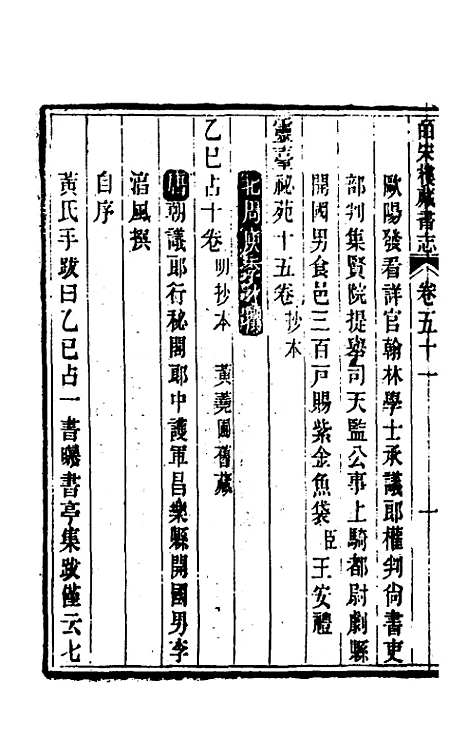 皕宋樓藏書志 卷五十一 一
歐陽發看詳官翰林學士承議郎權判尚書吏
部判集賢院提舉司天監公事上騎都尉劇縣
開國男食邑三百戸賜紫金魚袋臣王安禮
靈臺祕苑十五卷 抄本
北周庾季才撰
乙巳占十卷 明抄本 黃蕘圃舊藏
唐朝議郎行秘閣郎中護軍昌樂縣開國男李
淳風撰
自序
黃氏手跋曰乙巳占一書曝書亭集跋僅云七